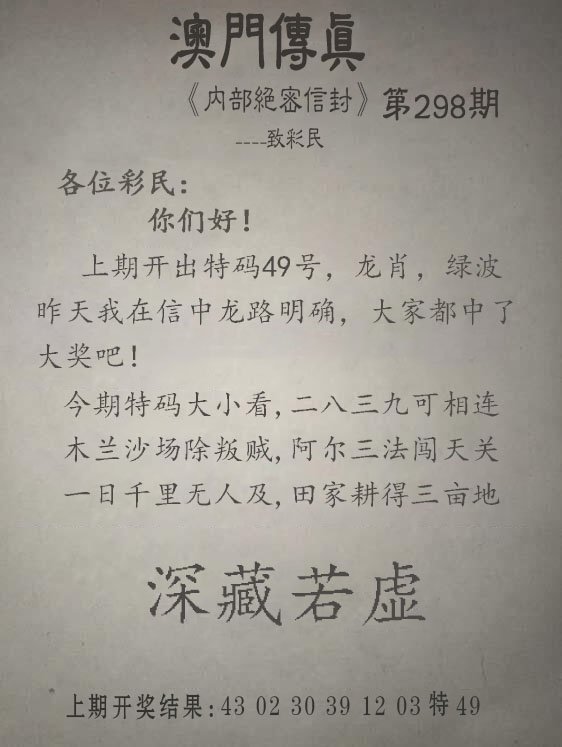 澳門傳真
《内部絕密信封》第298期
----致彩民
各位彩民:
你们好!
上期开出特码49号，龙肖，绿波
昨天我在信中龙路明确，大家都中了
大奖吧!
今期特码大小看,二八三九可相连
木兰沙场除叛贼,阿尔三法闯天关
一日千里无人及,田家耕得三亩地
深藏若虚
上期开奖结果:43 02 30 39 12 03特49